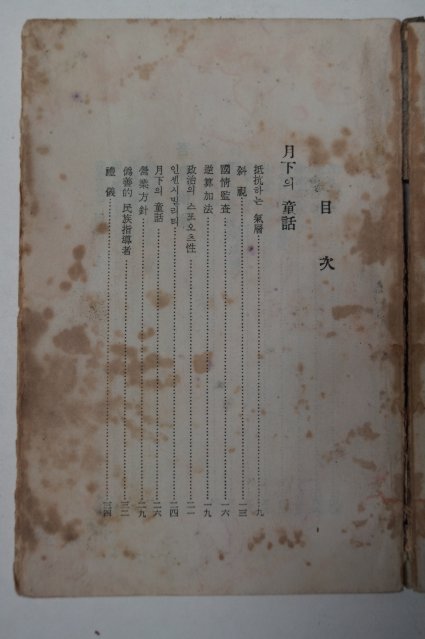 目次
月下의 童話
抵抗하는 氣層 九
斜視 一三
國情監査 一六
逆算加法 一九
政治의 스포오츠性 二一
인센시빌리티 二四
月下의 童話 二六
營業方針 二九
僞善的 民族指導者 三二
禮儀 三四